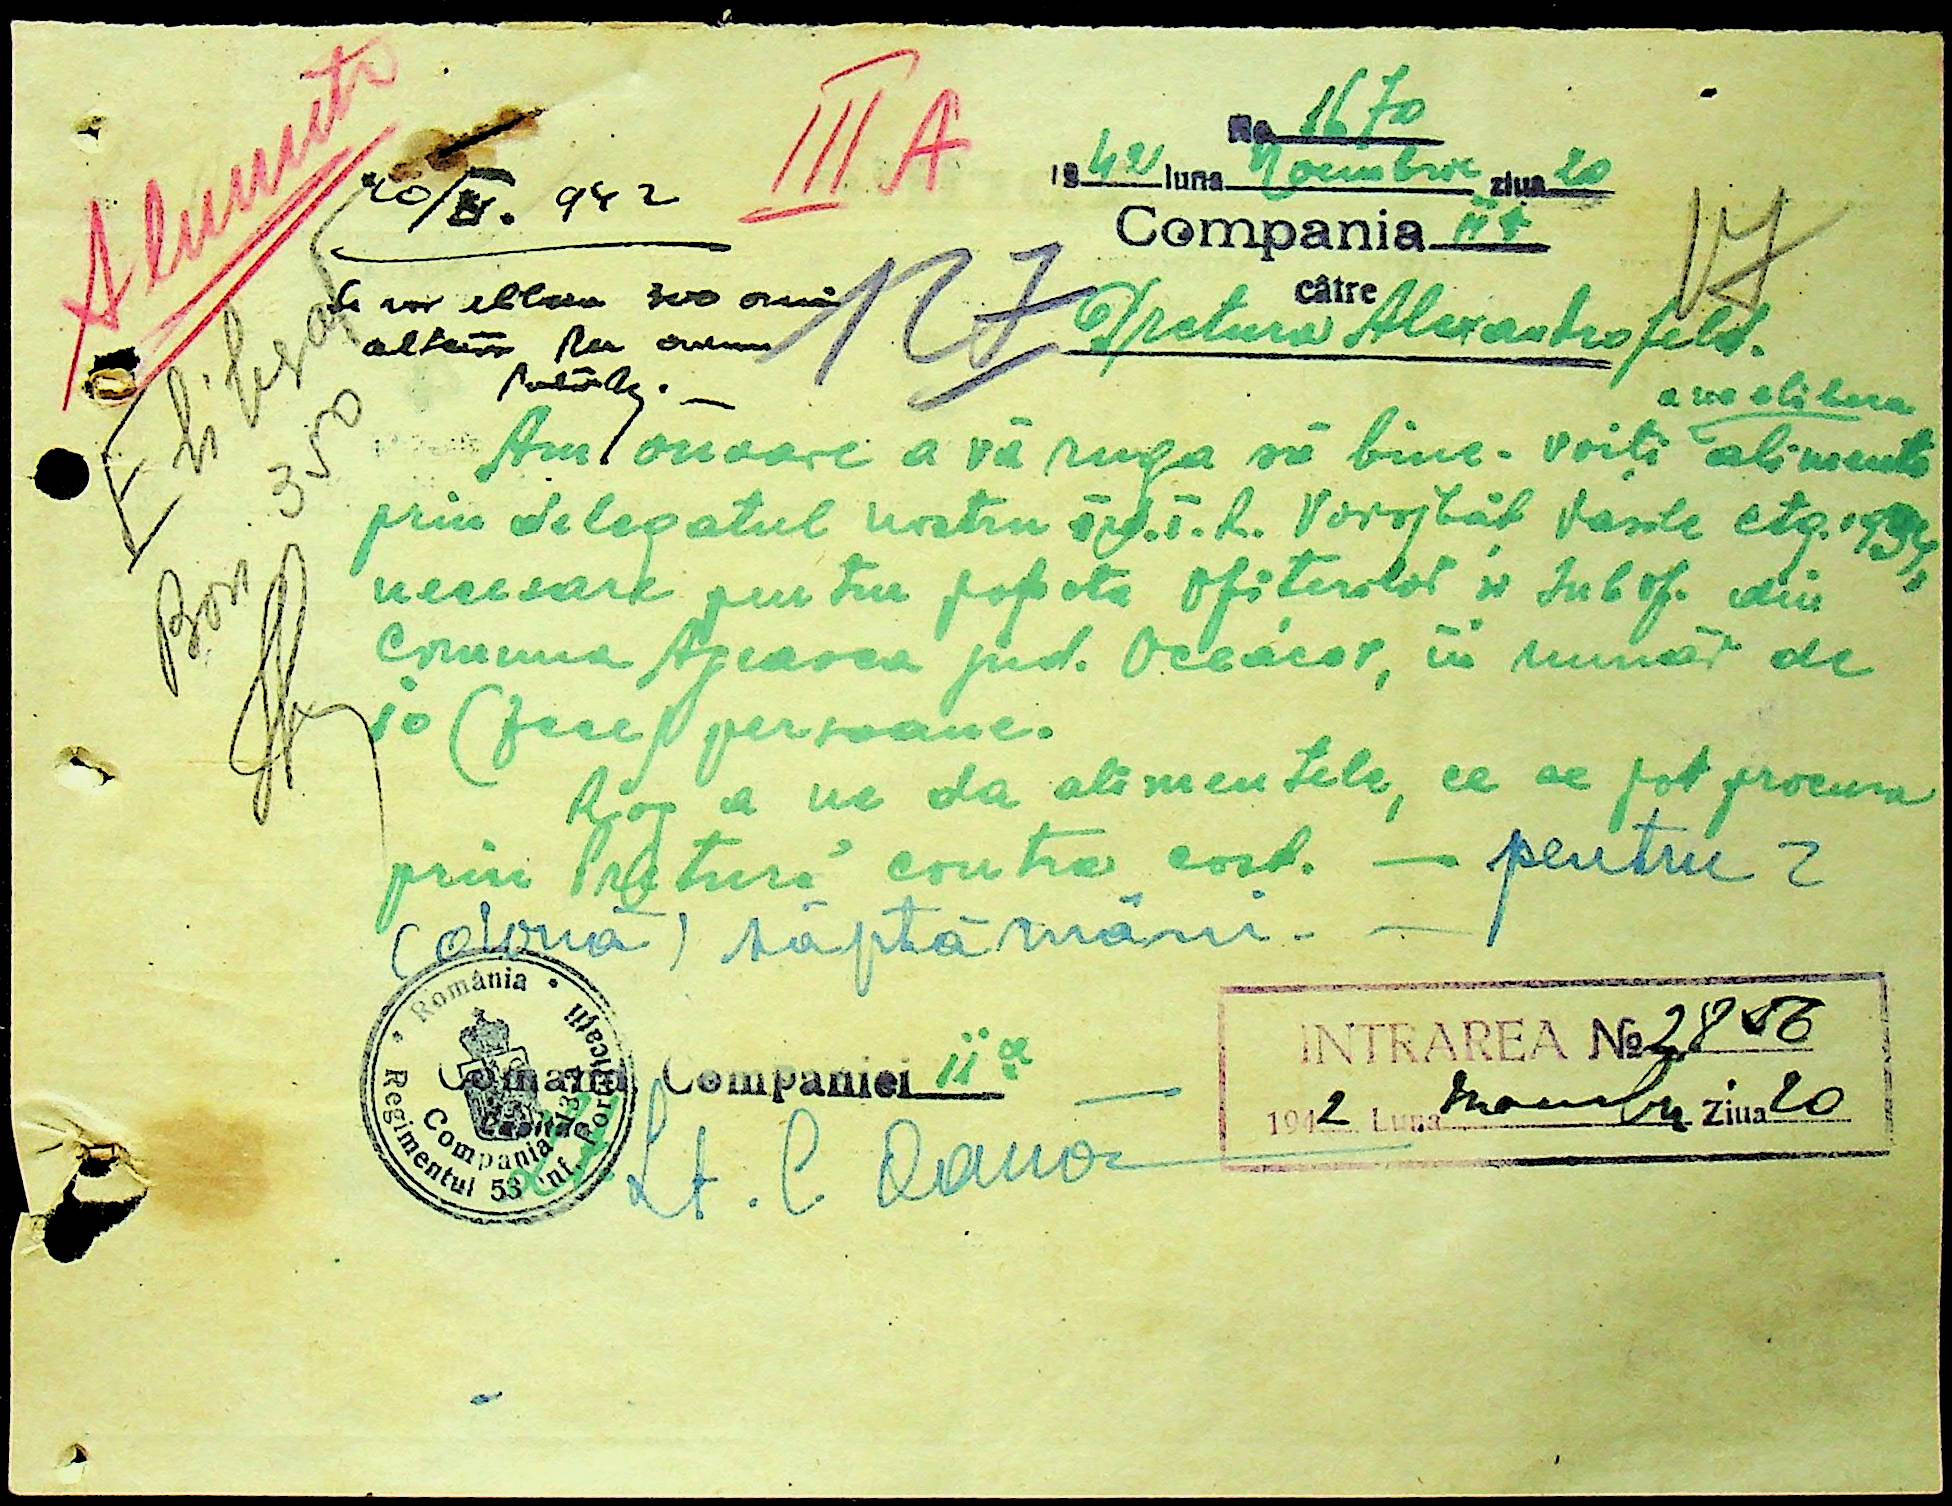 Alimente
III A
No 1670
1942 luna Noembrie ziua 20
Compania II a
către
Pretura Alexandrofeld.
20/XI. 942
Se vor elibera 300
Eliberat
Bon 350
a ne elibera
Am onoare a vă ruga să bine-voiți alimente
prin delegatul nostru Vasile ctg.
necesare pentru popota Ofițerilor și Subof. din
Comuna jud. Oceacov, în număr de
10 (zece) persoane.
Rog a ne da alimentele, ce se pot procura
prin Pretură contra cost. — pentru 2
(două) săptămâni. —
România
Regimentul 53 Inf. Fortificații
Compania
Comand. Companiei II a
Lt. C.
INTRAREA No 2856
1942 Luna Noembrie Ziua 20